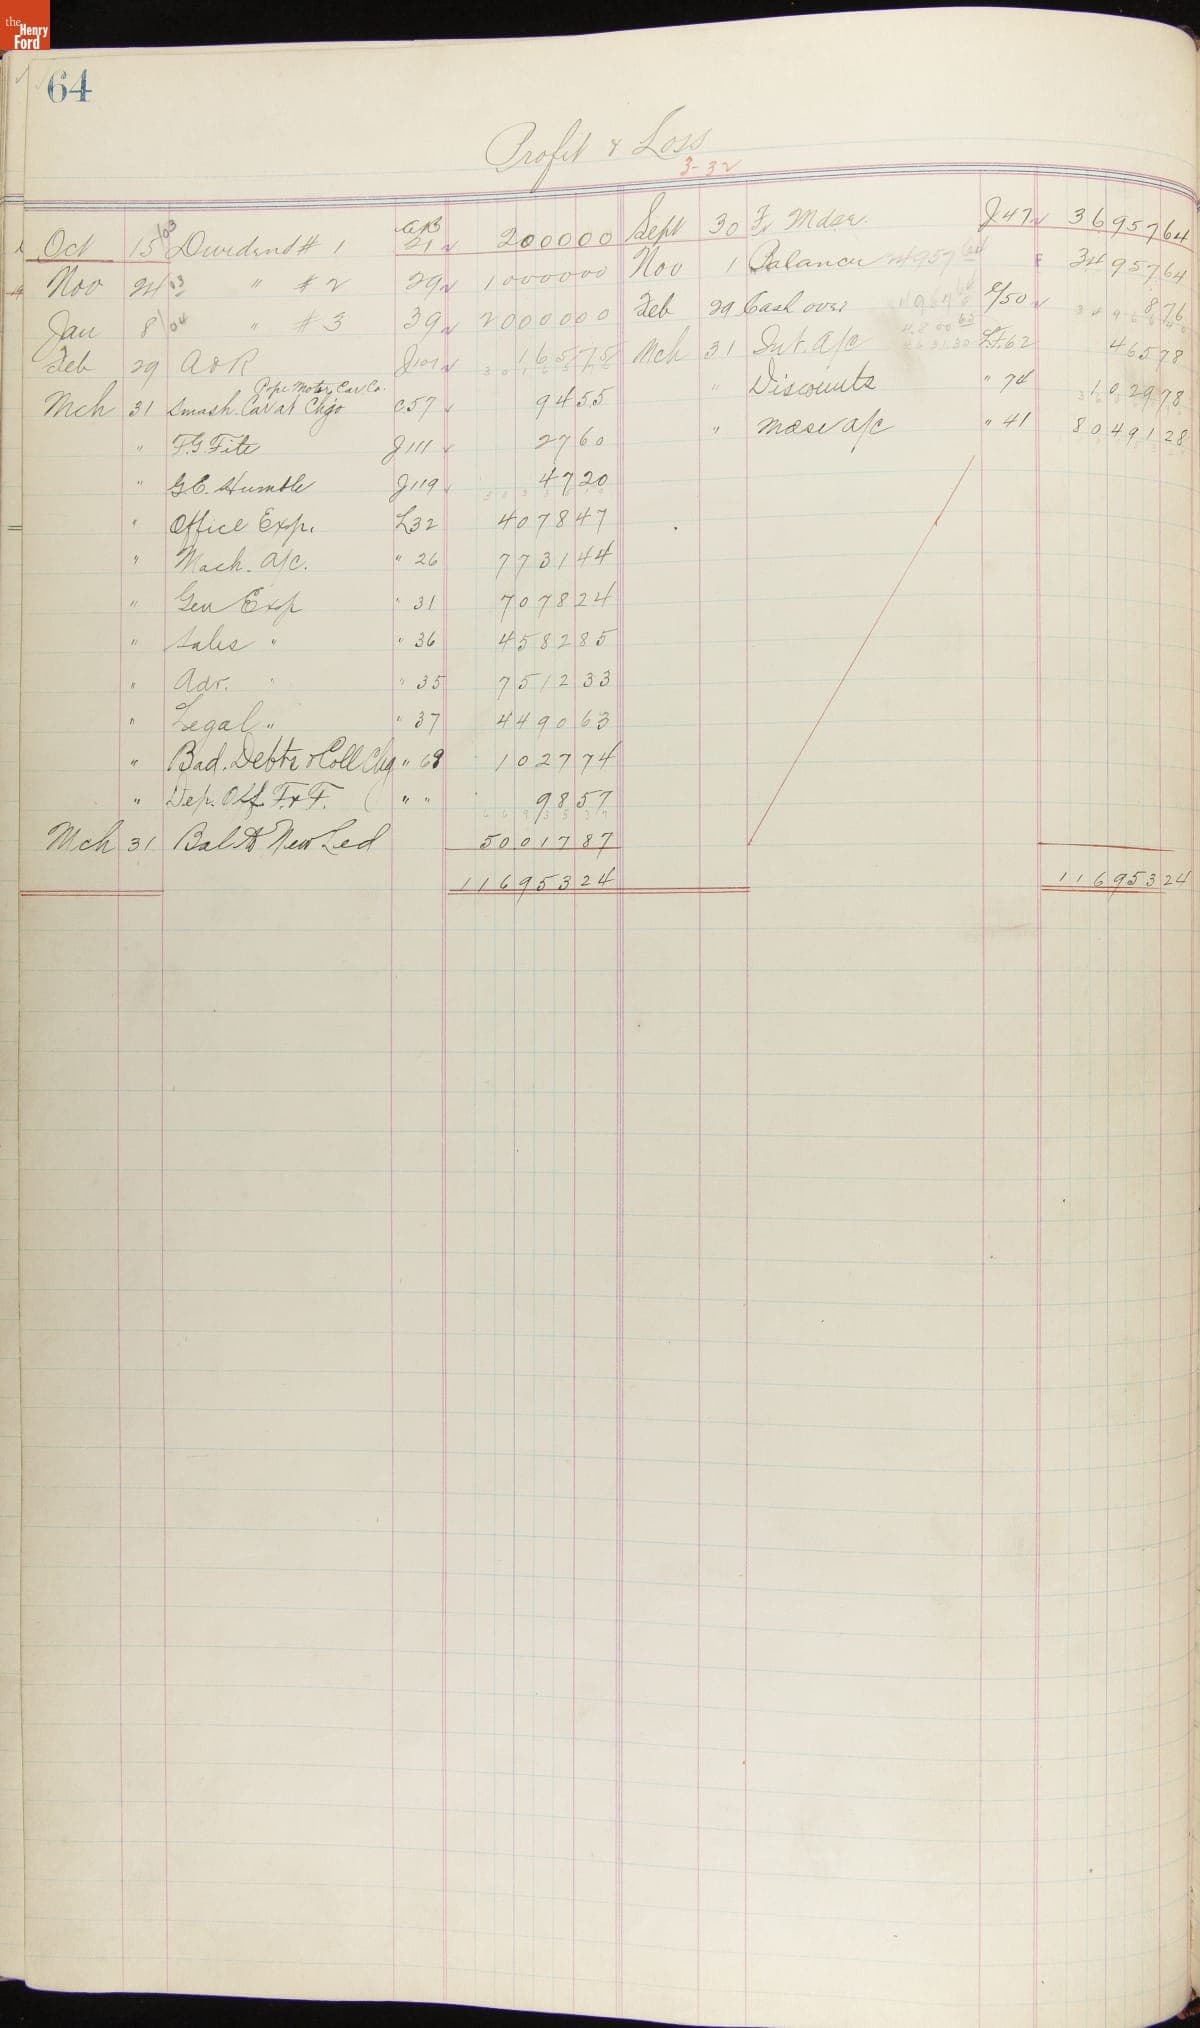 the Henry Ford
64
Profit & Loss
3-32
Oct 15 03 Dividend # 1 CB 21 200000
Nov 24 03 " # 2 29 1000000
Jan 8 04 " # 3 39 2000000
Feb 29 A & R J107 16575
Pope Motor Car Co.
Mch 31 Smash. Car at Chgo C57 9455
" F.G. Fite J111 2760
" G.E. Humble J119 4720
" Office Exp. L32 407847
" Mach. a/c. " 26 773144
" Gen Exp " 31 707824
" Sales " " 36 458285
" Adv. " " 35 751233
" Legal " " 37 449063
" Bad. Debts & Coll Chg " 68 102774
" Dep. Off. F. & F. " " 9857
Mch 31 Bal to New Led 5001787
11695324
Sept 30 Fr Mdse. J47 3695764
Nov 1 Balance 3495764
Feb 29 Cash over C/50 876
Mch 31 Int. a/c L.F. 62 46578
" Discounts " 74 102978
" Mdse a/c " 41 8049128
11695324